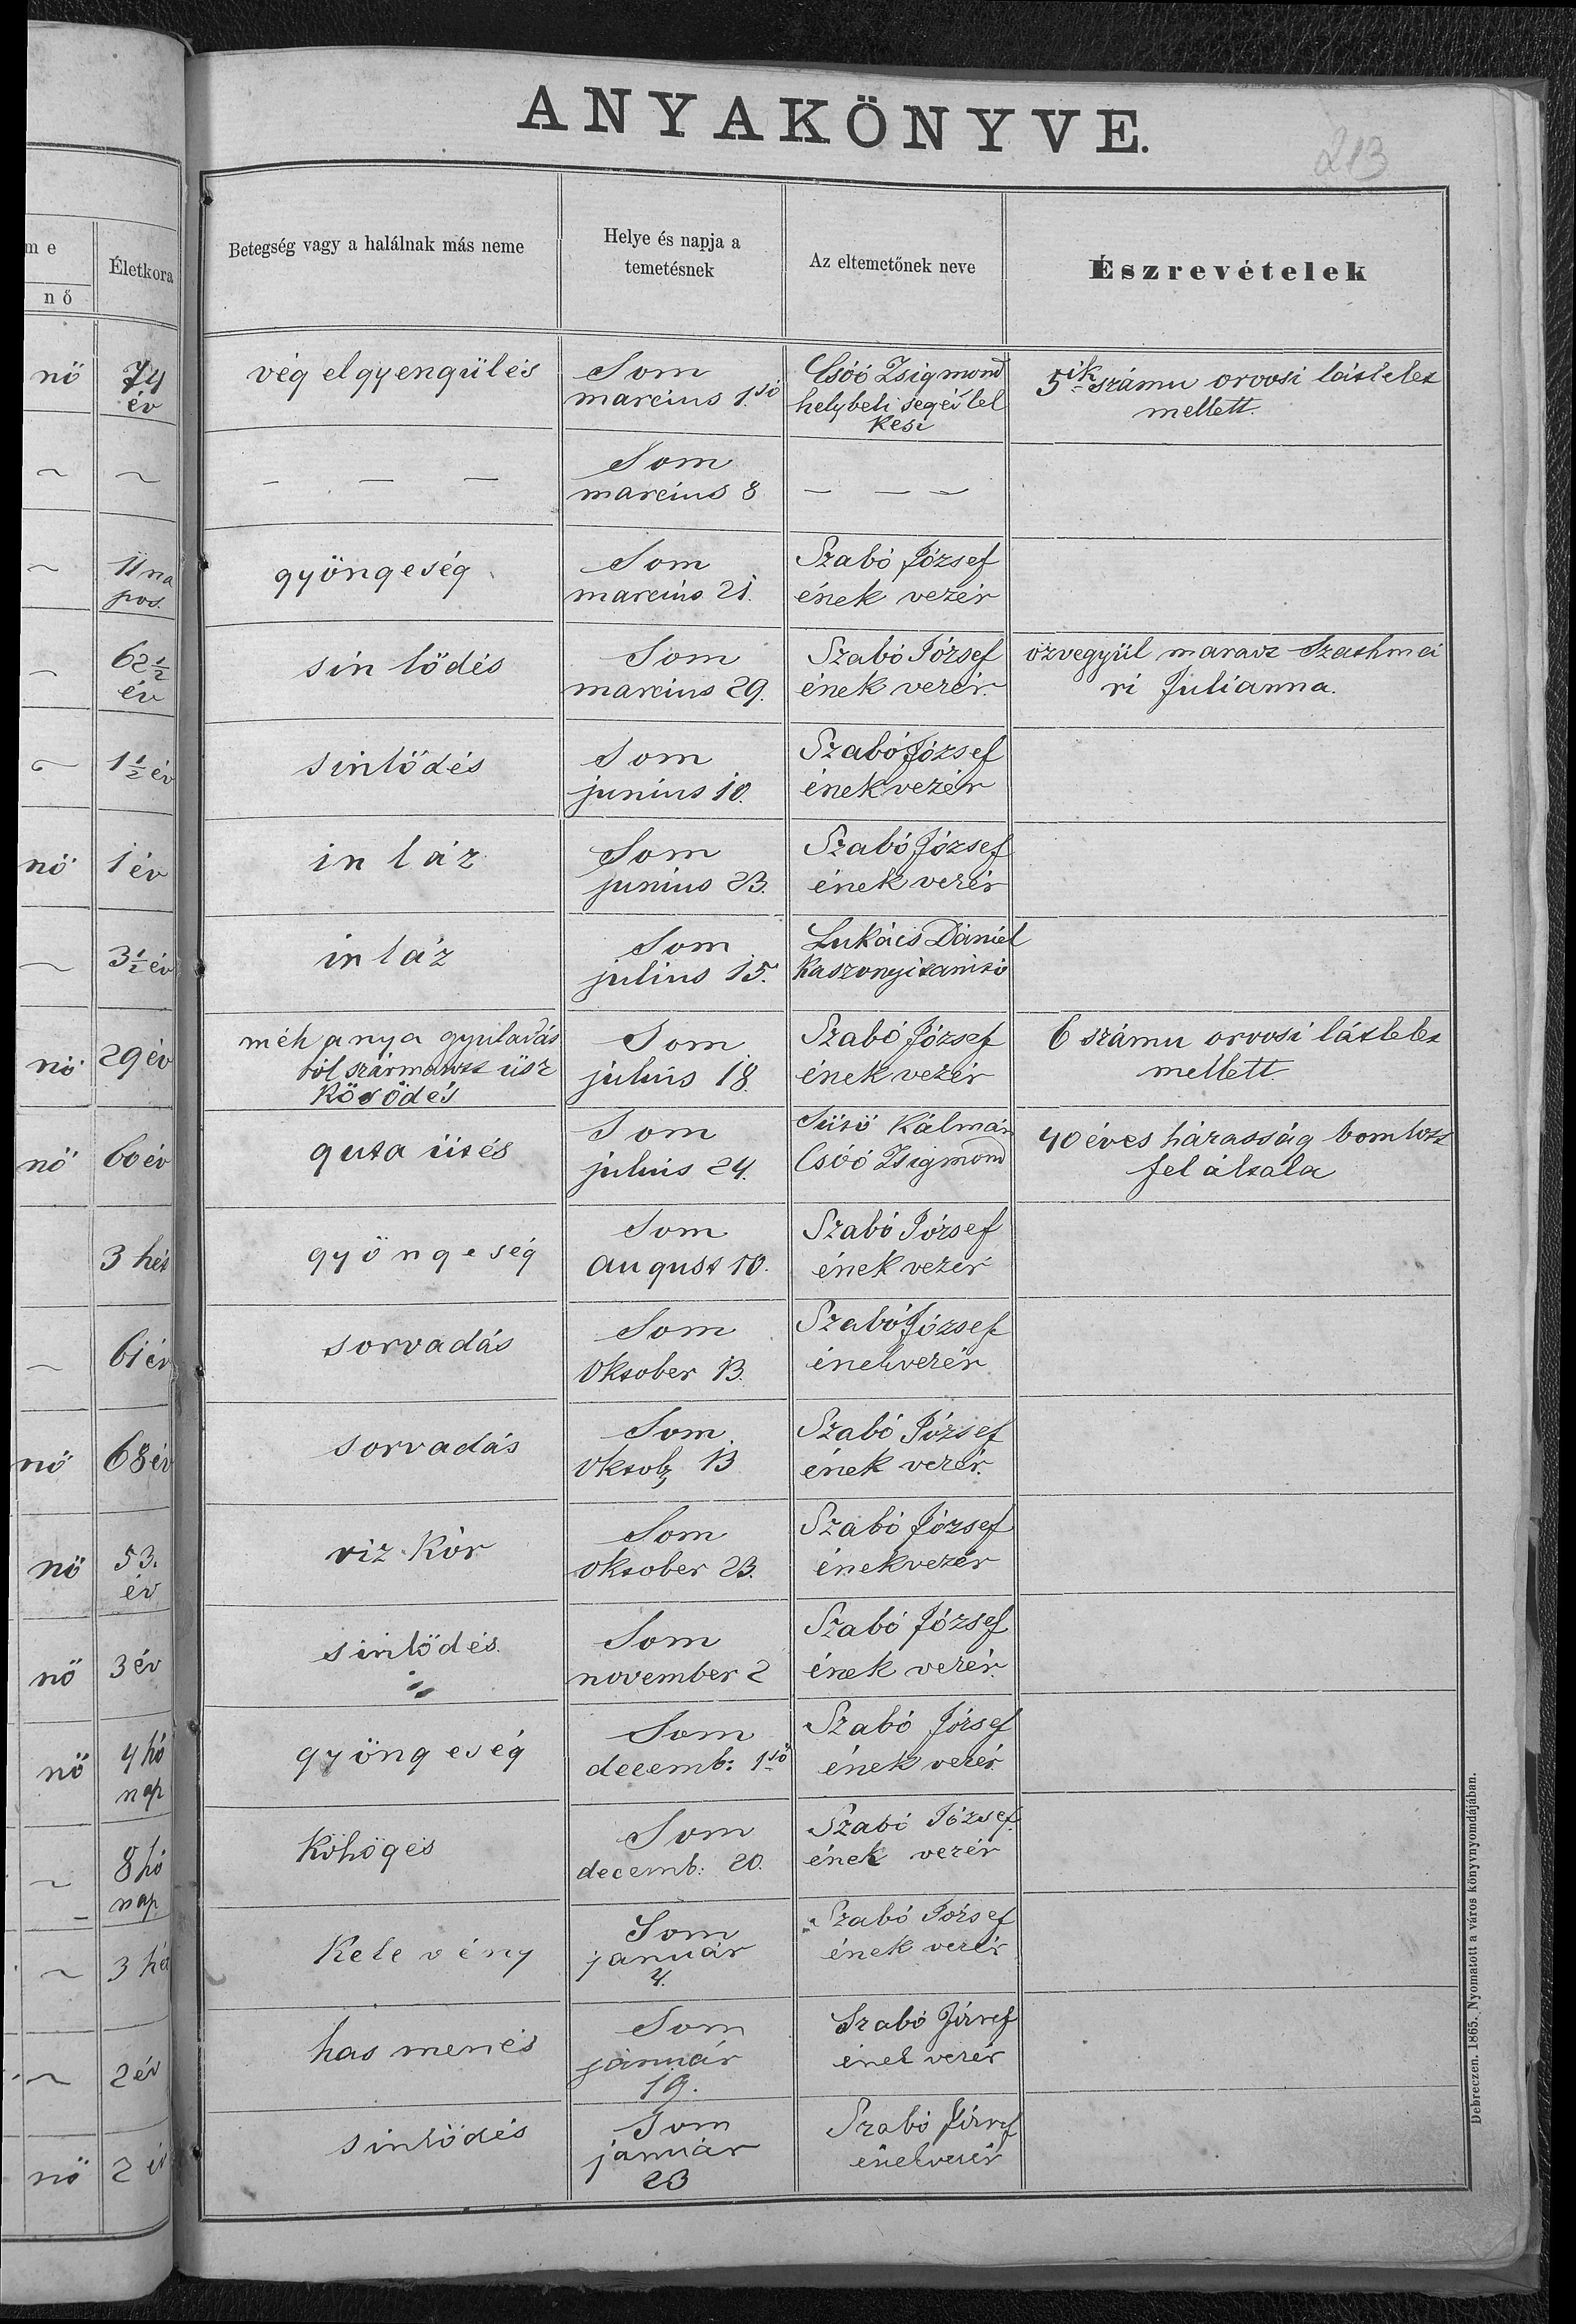 ANYAKÖNYVE.
213
me
nő
Életkora
Betegség vagy a halálnak más neme
Helye és napja a
temetésnek
Az eltemetőnek neve
Észrevételek
nö
74
év
vég elgyengülés
Som
marcius 1.ső
Csóó Zsigmond
helybeli segéd lel
kesi
5ik számu orvosi látlelet
mellett.
~
~
— — —
Som
marcius 8
— — —
~
11 na
pos.
gyöngeség
Som
marcius 21.
Szabó József
ének vezér
~
62 1/2
év
sin lödés
Som
marcius 29.
Szabó József
ének vezér.
özvegyül maradt Szathmá
ri Julianna.
~
1 1/2 év
sinlödés
Som
junius 10.
Szabó József
énekvezér
nö
1 év
in láz
Som
junius 23.
Szabó József
ének vezér
~
3 1/2 év
in láz
Som
julius 15.
Lukács Dániel
Kaszonyi tanitó
nö
29 év
méh anya gyuladás
ból származott üsz
kösödés
Som
julius 18.
Szabó József
ének vezér
6 számu orvosi látlelet
mellett.
nö
60 év
guta ütés
Som
julius 24.
Sütö Kálmán
Csóó Zsigmond
40 éves házasság bomlott
fel általa
3 hét
gyöngeség
Som
august 10.
Szabó József
ének vezér
~
61 év
sorvadás
Som
Oktober 13.
Szabó József
énekvezér
nö
68 év
sorvadás
Som
Oktob 13
Szabó József
ének vezér.
nö
53.
év
viz kór
Som
oktober 23.
Szabó József
énekvezér
nö
3 év
sinlödés.
Som
november 2
Szabó József
ének vezér.
nö
4 hó
nap
gyöngeség
Som
decemb: 1ső
Szabó József
ének vezér.
~
8 hó
nap
Köhögés
Som
decemb: 20.
Szabó József.
ének vezér
~
3 hét
Kelevény
Som
január
4.
Szabó József
ének vezér
~
2 év
has menés
Som
január
19.
Szabó József
ének vezér
nö
2 év
sinlödés
Som
január
23
Szabó József
énekvezér
Debreczen. 1865. Nyomatott a város könyvnyomdájában.